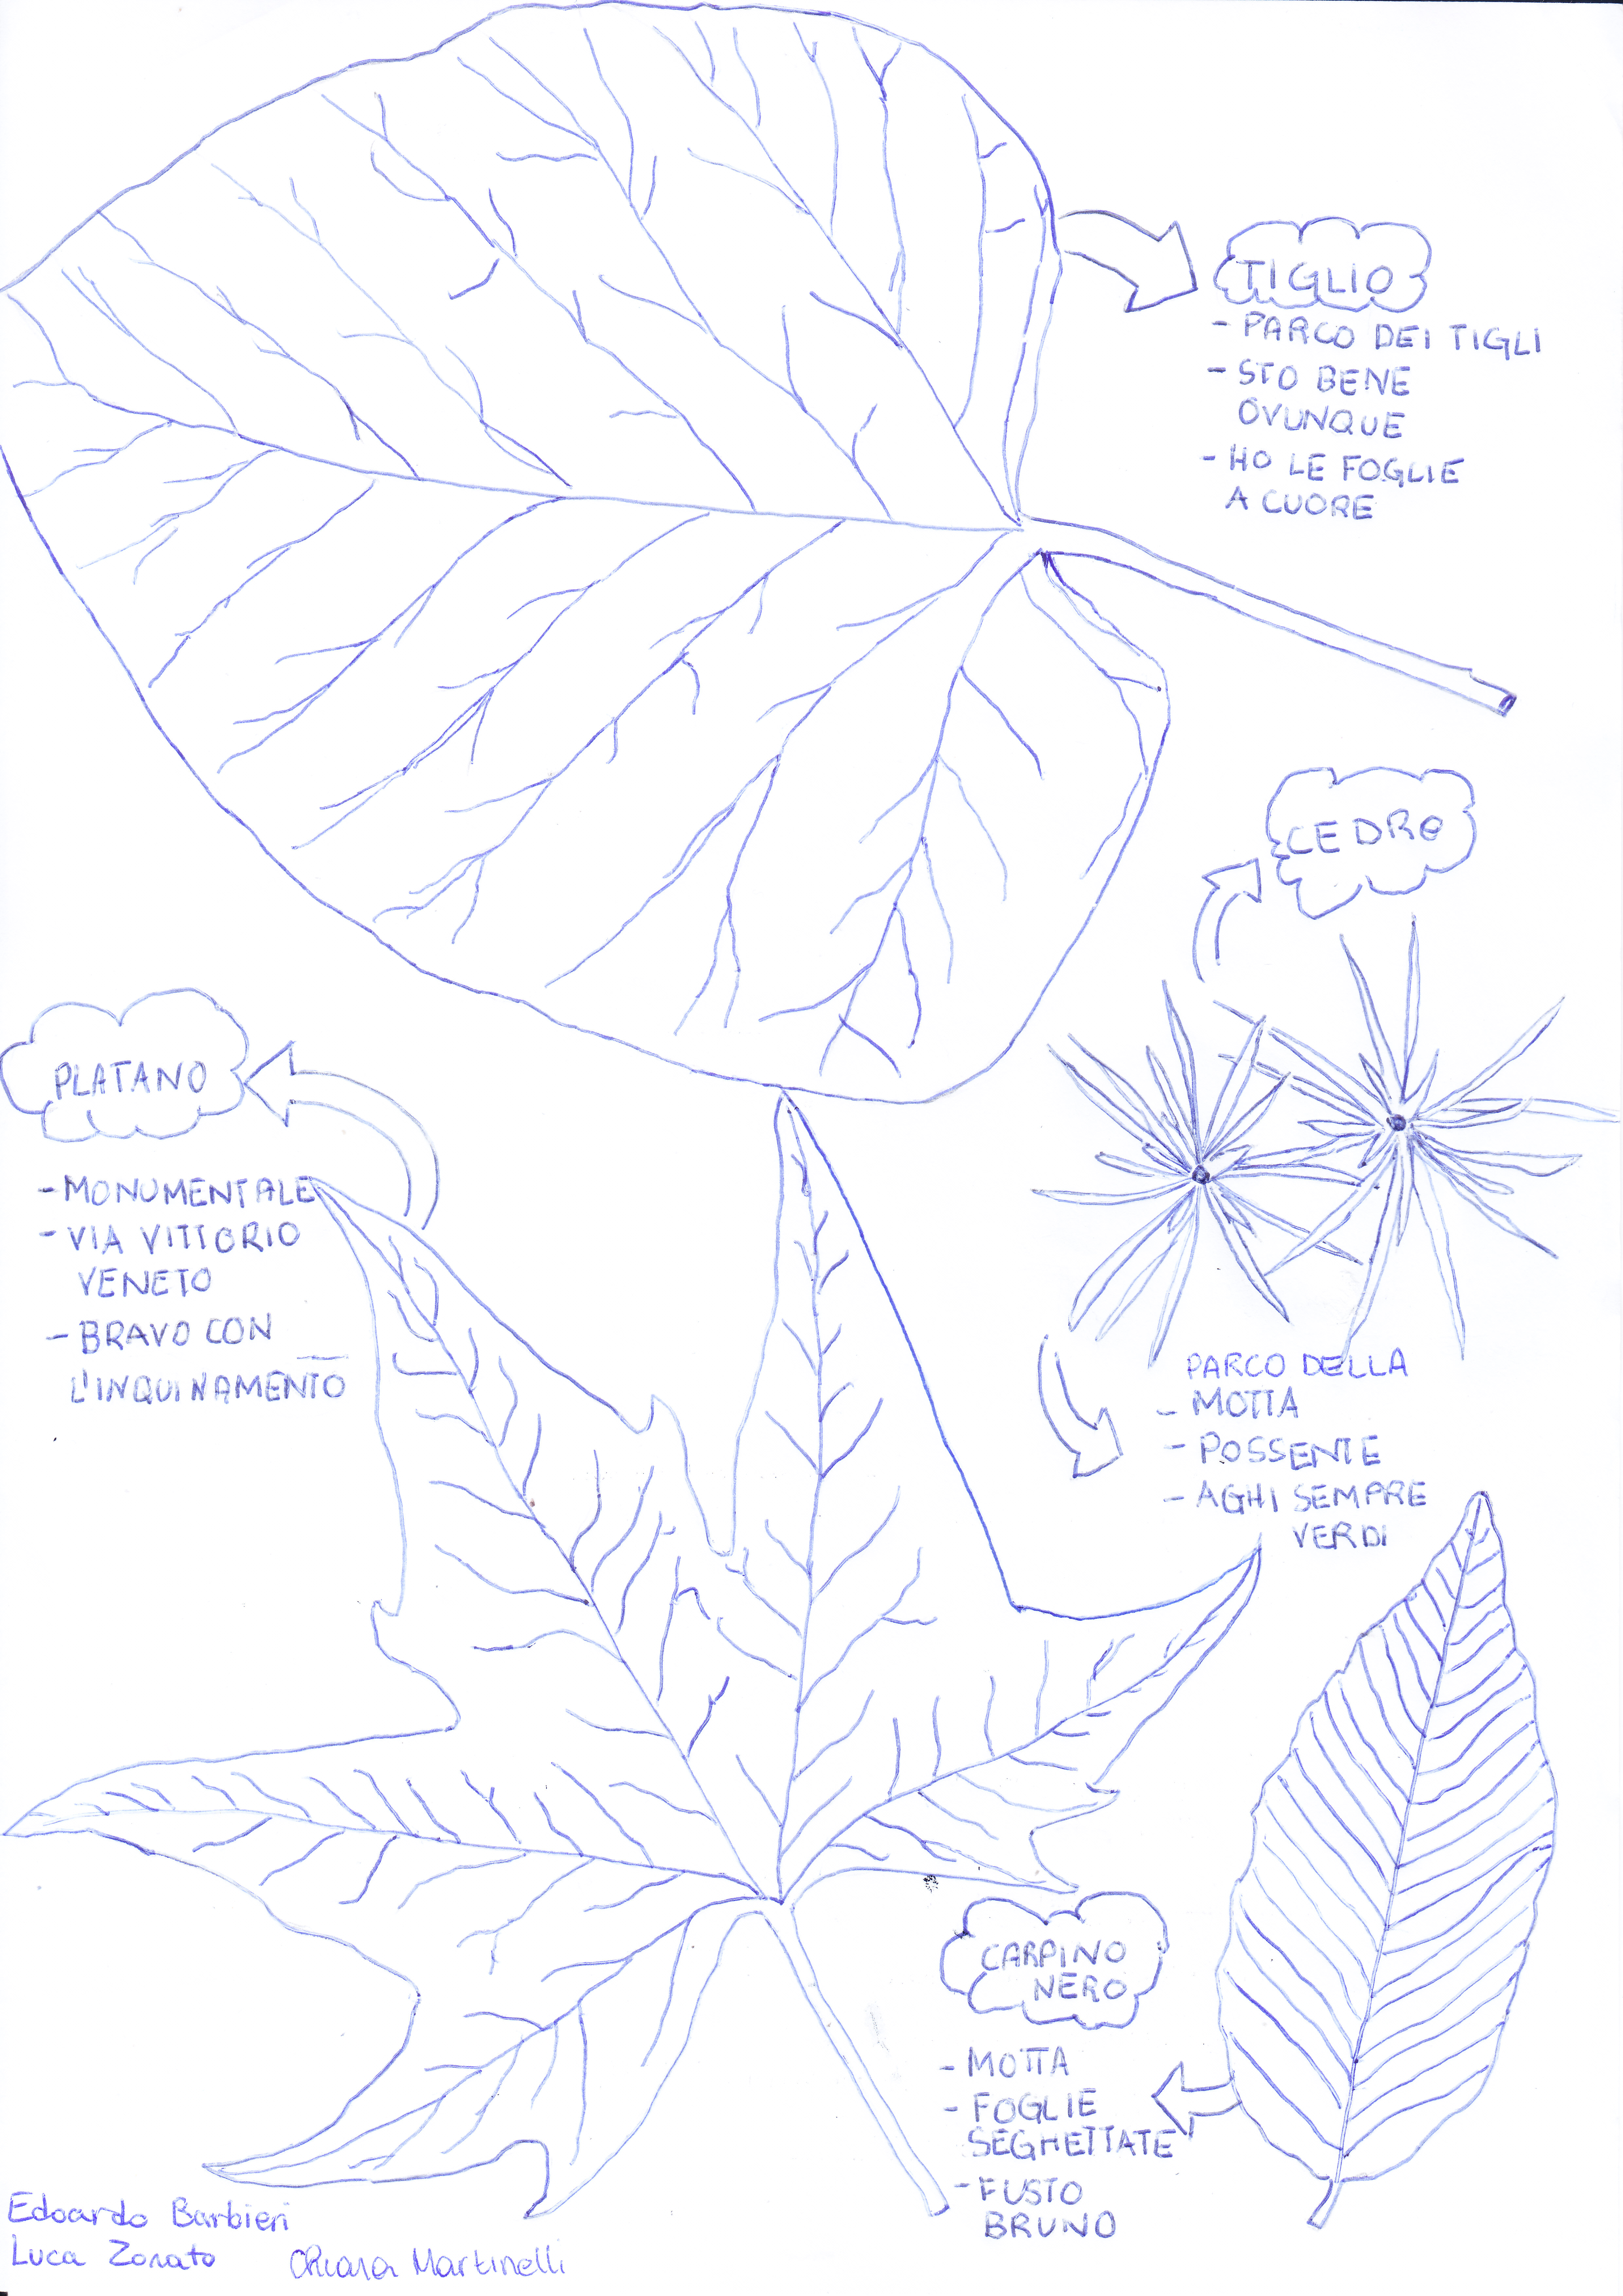 TIGLIO
- PARCO DEI TIGLI
- STO BENE
OVUNQUE
- HO LE FOGLIE
A CUORE
CEDRO
PARCO DELLA
- MOTTA
- POSSENTE
- AGHI SEMPRE
VERDI
PLATANO
- MONUMENTALE
- VIA VITTORIO
VENETO
- BRAVO CON
L'INQUINAMENTO
CARPINO
NERO
- MOTTA
- FOGLIE
SEGHETTATE
- FUSTO
BRUNO
Edoardo Barbieri
Luca Zonato
Chiara Martinelli